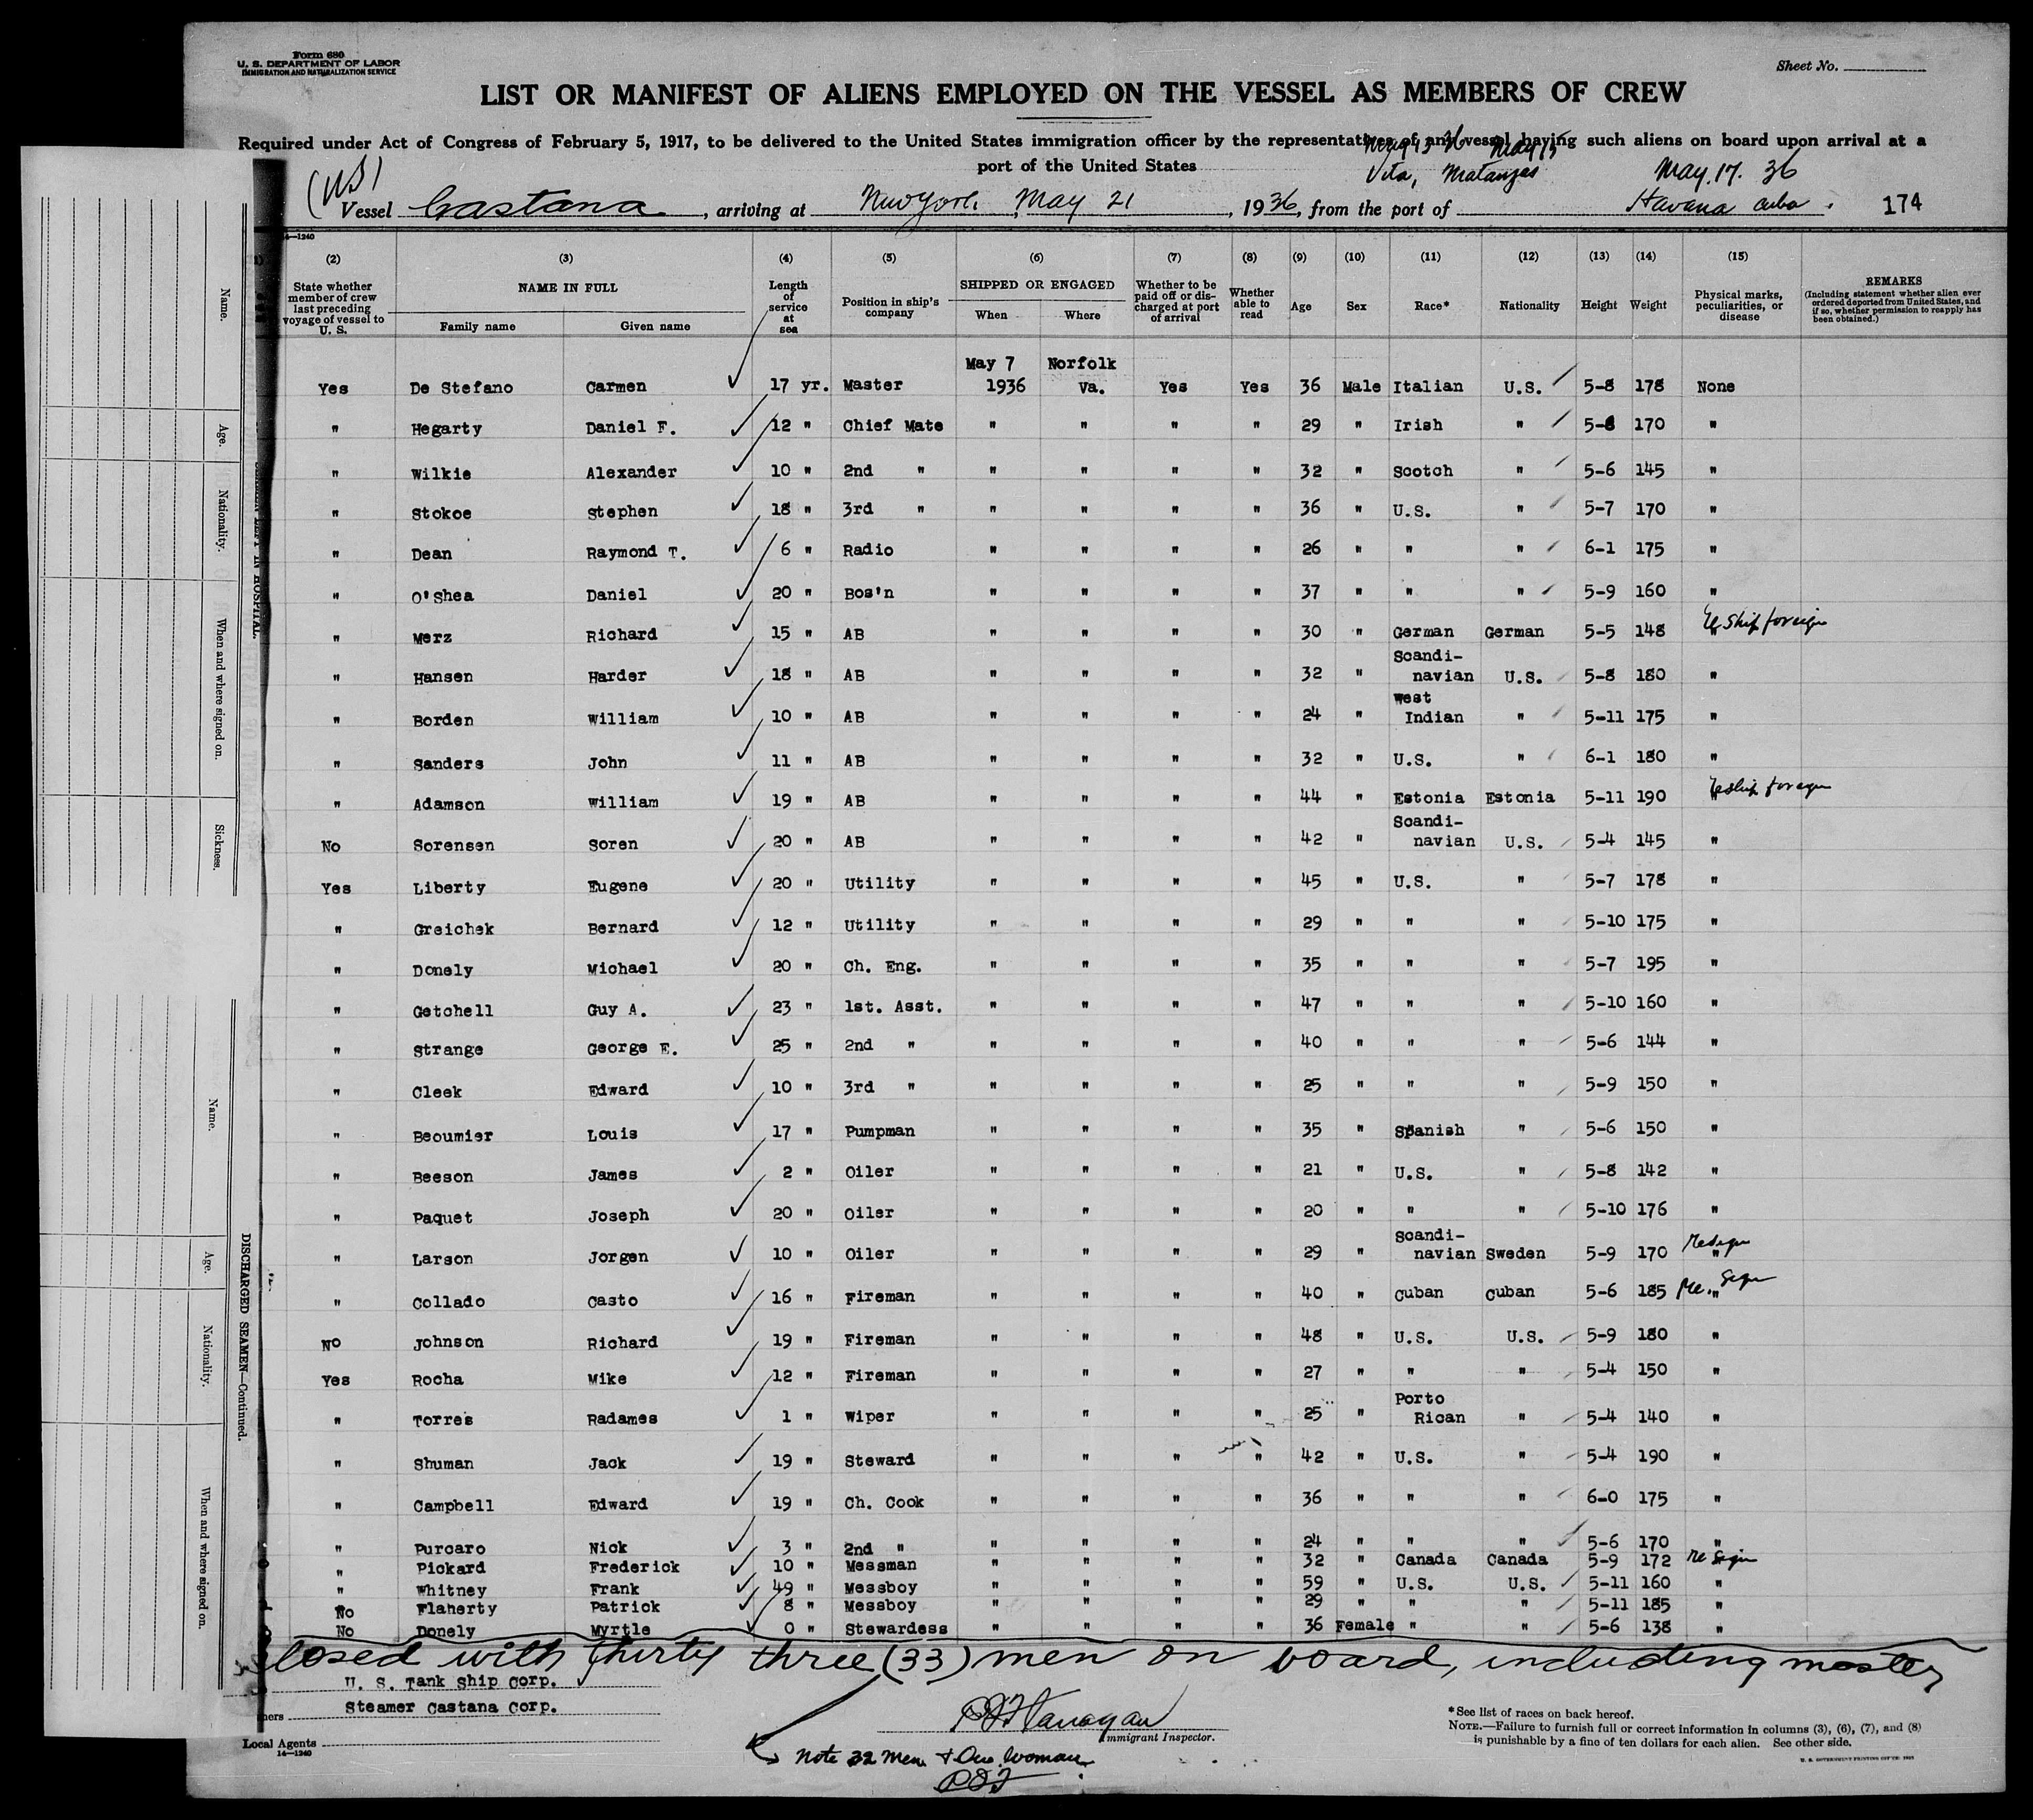 Form 680
U. S. DEPARTMENT OF LABOR
IMMIGRATION AND NATURALIZATION SERVICE
Sheet No.
LIST OR MANIFEST OF ALIENS EMPLOYED ON THE VESSEL AS MEMBERS OF CREW
Required under Act of Congress of February 5, 1917, to be delivered to the United States immigration officer by the representatives of any vessel having such aliens on board upon arrival at a
port of the United States
May 13 36 May 15
Vita, Matanzas May. 17. 36
(US)
Vessel Castana, arriving at New York, May 21, 1936, from the port of Havana Cuba. 174
14—1240
(2) (3) (4) (5) (6) (7) (8) (9) (10) (11) (12) (13) (14) (15)
State whether member of crew last preceding voyage of vessel to U. S. NAME IN FULL Family name Given name Length of service at sea Position in ship's company SHIPPED OR ENGAGED When Where Whether to be paid off or discharged at port of arrival Whether able to read Age Sex Race* Nationality Height Weight Physical marks, peculiarities, or disease REMARKS (Including statement whether alien ever ordered deported from United States, and if so, whether permission to reapply has been obtained.)
May 7 Norfolk
Yes De Stefano Carmen 17 yr. Master 1936 Va. Yes Yes 36 Male Italian U.S. 5-8 178 None
" Hegarty Daniel F. 12 " Chief Mate " " " " 29 " Irish " 5-8 170 "
" Wilkie Alexander 10 " 2nd " " " " " 32 " Scotch " 5-6 145 "
" Stokoe Stephen 18 " 3rd " " " " " 36 " U.S. " 5-7 170 "
" Dean Raymond T. 6 " Radio " " " " 26 " " " 6-1 175 "
" O'Shea Daniel 20 " Bos'n " " " " 37 " " " 5-9 160 "
" Merz Richard 15 " AB " " " " 30 " German German 5-5 148 " ship foreign
" Hansen Harder 18 " AB " " " " 32 " Scandi-navian U.S. 5-8 180 "
" Borden William 10 " AB " " " " 24 " West Indian " 5-11 175 "
" Sanders John 11 " AB " " " " 32 " U.S. " 6-1 180 "
" Adamson William 19 " AB " " " " 44 " Estonia Estonia 5-11 190 " ship foreign
No Sorensen Soren 20 " AB " " " " 42 " Scandi-navian U.S. 5-4 145 "
Yes Liberty Eugene 20 " Utility " " " " 45 " U.S. " 5-7 178 "
" Greichek Bernard 12 " Utility " " " " 29 " " " 5-10 175 "
" Donely Michael 20 " Ch. Eng. " " " " 35 " " " 5-7 195 "
" Getchell Guy A. 23 " 1st. Asst. " " " " 47 " " " 5-10 160 "
" Strange George E. 25 " 2nd " " " " " 40 " " " 5-6 144 "
" Cleek Edward 10 " 3rd " " " " " 25 " " " 5-9 150 "
" Beoumier Louis 17 " Pumpman " " " " 35 " Spanish " 5-6 150 "
" Beeson James 2 " Oiler " " " " 21 " U.S. " 5-8 142 "
" Paquet Joseph 20 " Oiler " " " " 20 " " " 5-10 176 "
" Larson Jorgen 10 " Oiler " " " " 29 " Scandi-navian Sweden 5-9 170 " Resign
" Collado Casto 16 " Fireman " " " " 40 " Cuban Cuban 5-6 185 " Re. Sign
No Johnson Richard 19 " Fireman " " " " 48 " U.S. U.S. 5-9 180 "
Yes Rocha Mike 12 " Fireman " " " " 27 " " " 5-4 150 "
" Torres Radames 1 " Wiper " " " " 25 " Porto Rican " 5-4 140 "
" Shuman Jack 19 " Steward " " " " 42 " U.S. " 5-4 190 "
" Campbell Edward 19 " Ch. Cook " " " " 36 " " " 6-0 175 "
" Purcaro Nick 3 " 2nd " " " " " 24 " " " 5-6 170 "
" Pickard Frederick 10 " Messman " " " " 32 " Canada Canada 5-9 172 Re Sign
" Whitney Frank 49 " Messboy " " " " 59 " U.S. U.S. 5-11 160 "
No Flaherty Patrick 8 " Messboy " " " " 29 " " " 5-11 185 "
No Donely Myrtle 0 " Stewardess " " " " 36 Female " " 5-6 138 "
losed with thirty three (33) men on board, including master
U. S. Tank Ship Corp.
Steamer Castana Corp.
ners
Local Agents
14—1240
Immigrant Inspector.
Note 32 Men & One Woman
*See list of races on back hereof.
NOTE.—Failure to furnish full or correct information in columns (3), (6), (7), and (8)
is punishable by a fine of ten dollars for each alien. See other side.
Name.
Age.
Nationality.
When and where signed on.
Sickness.
IN HOSPITAL.
Name.
Age.
Nationality.
When and where signed on.
DISCHARGED SEAMEN—Continued.